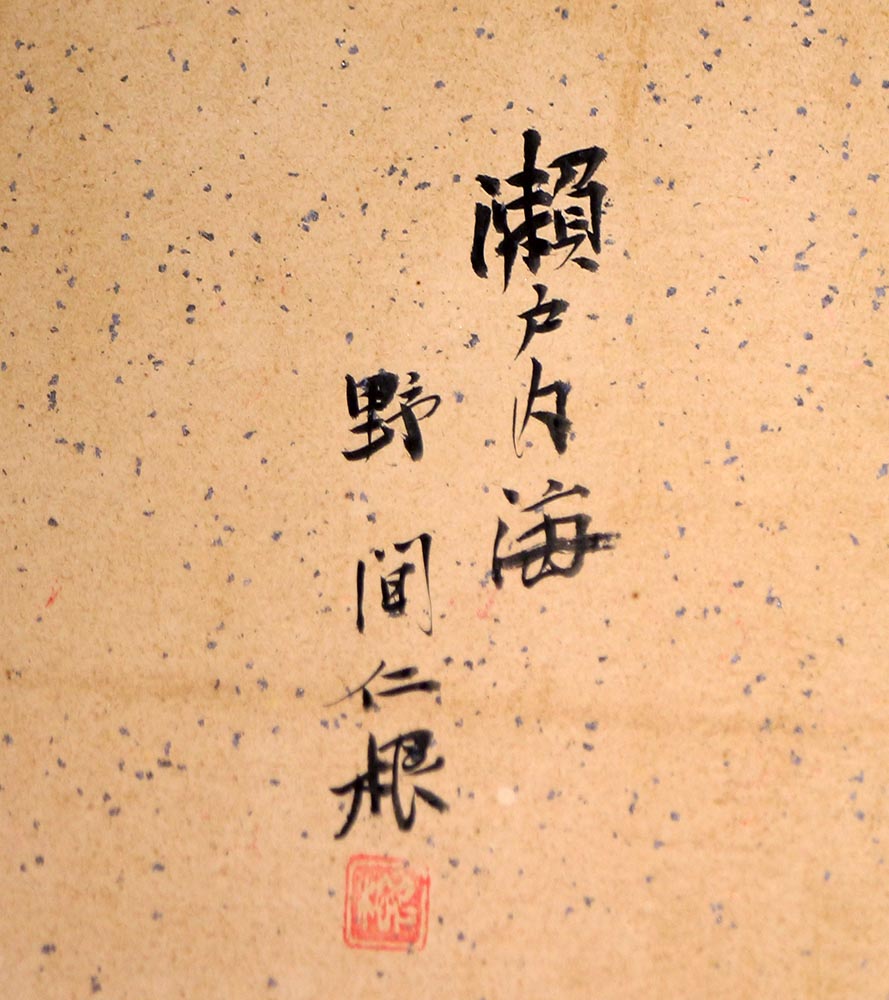 瀬戸内海
野間仁根